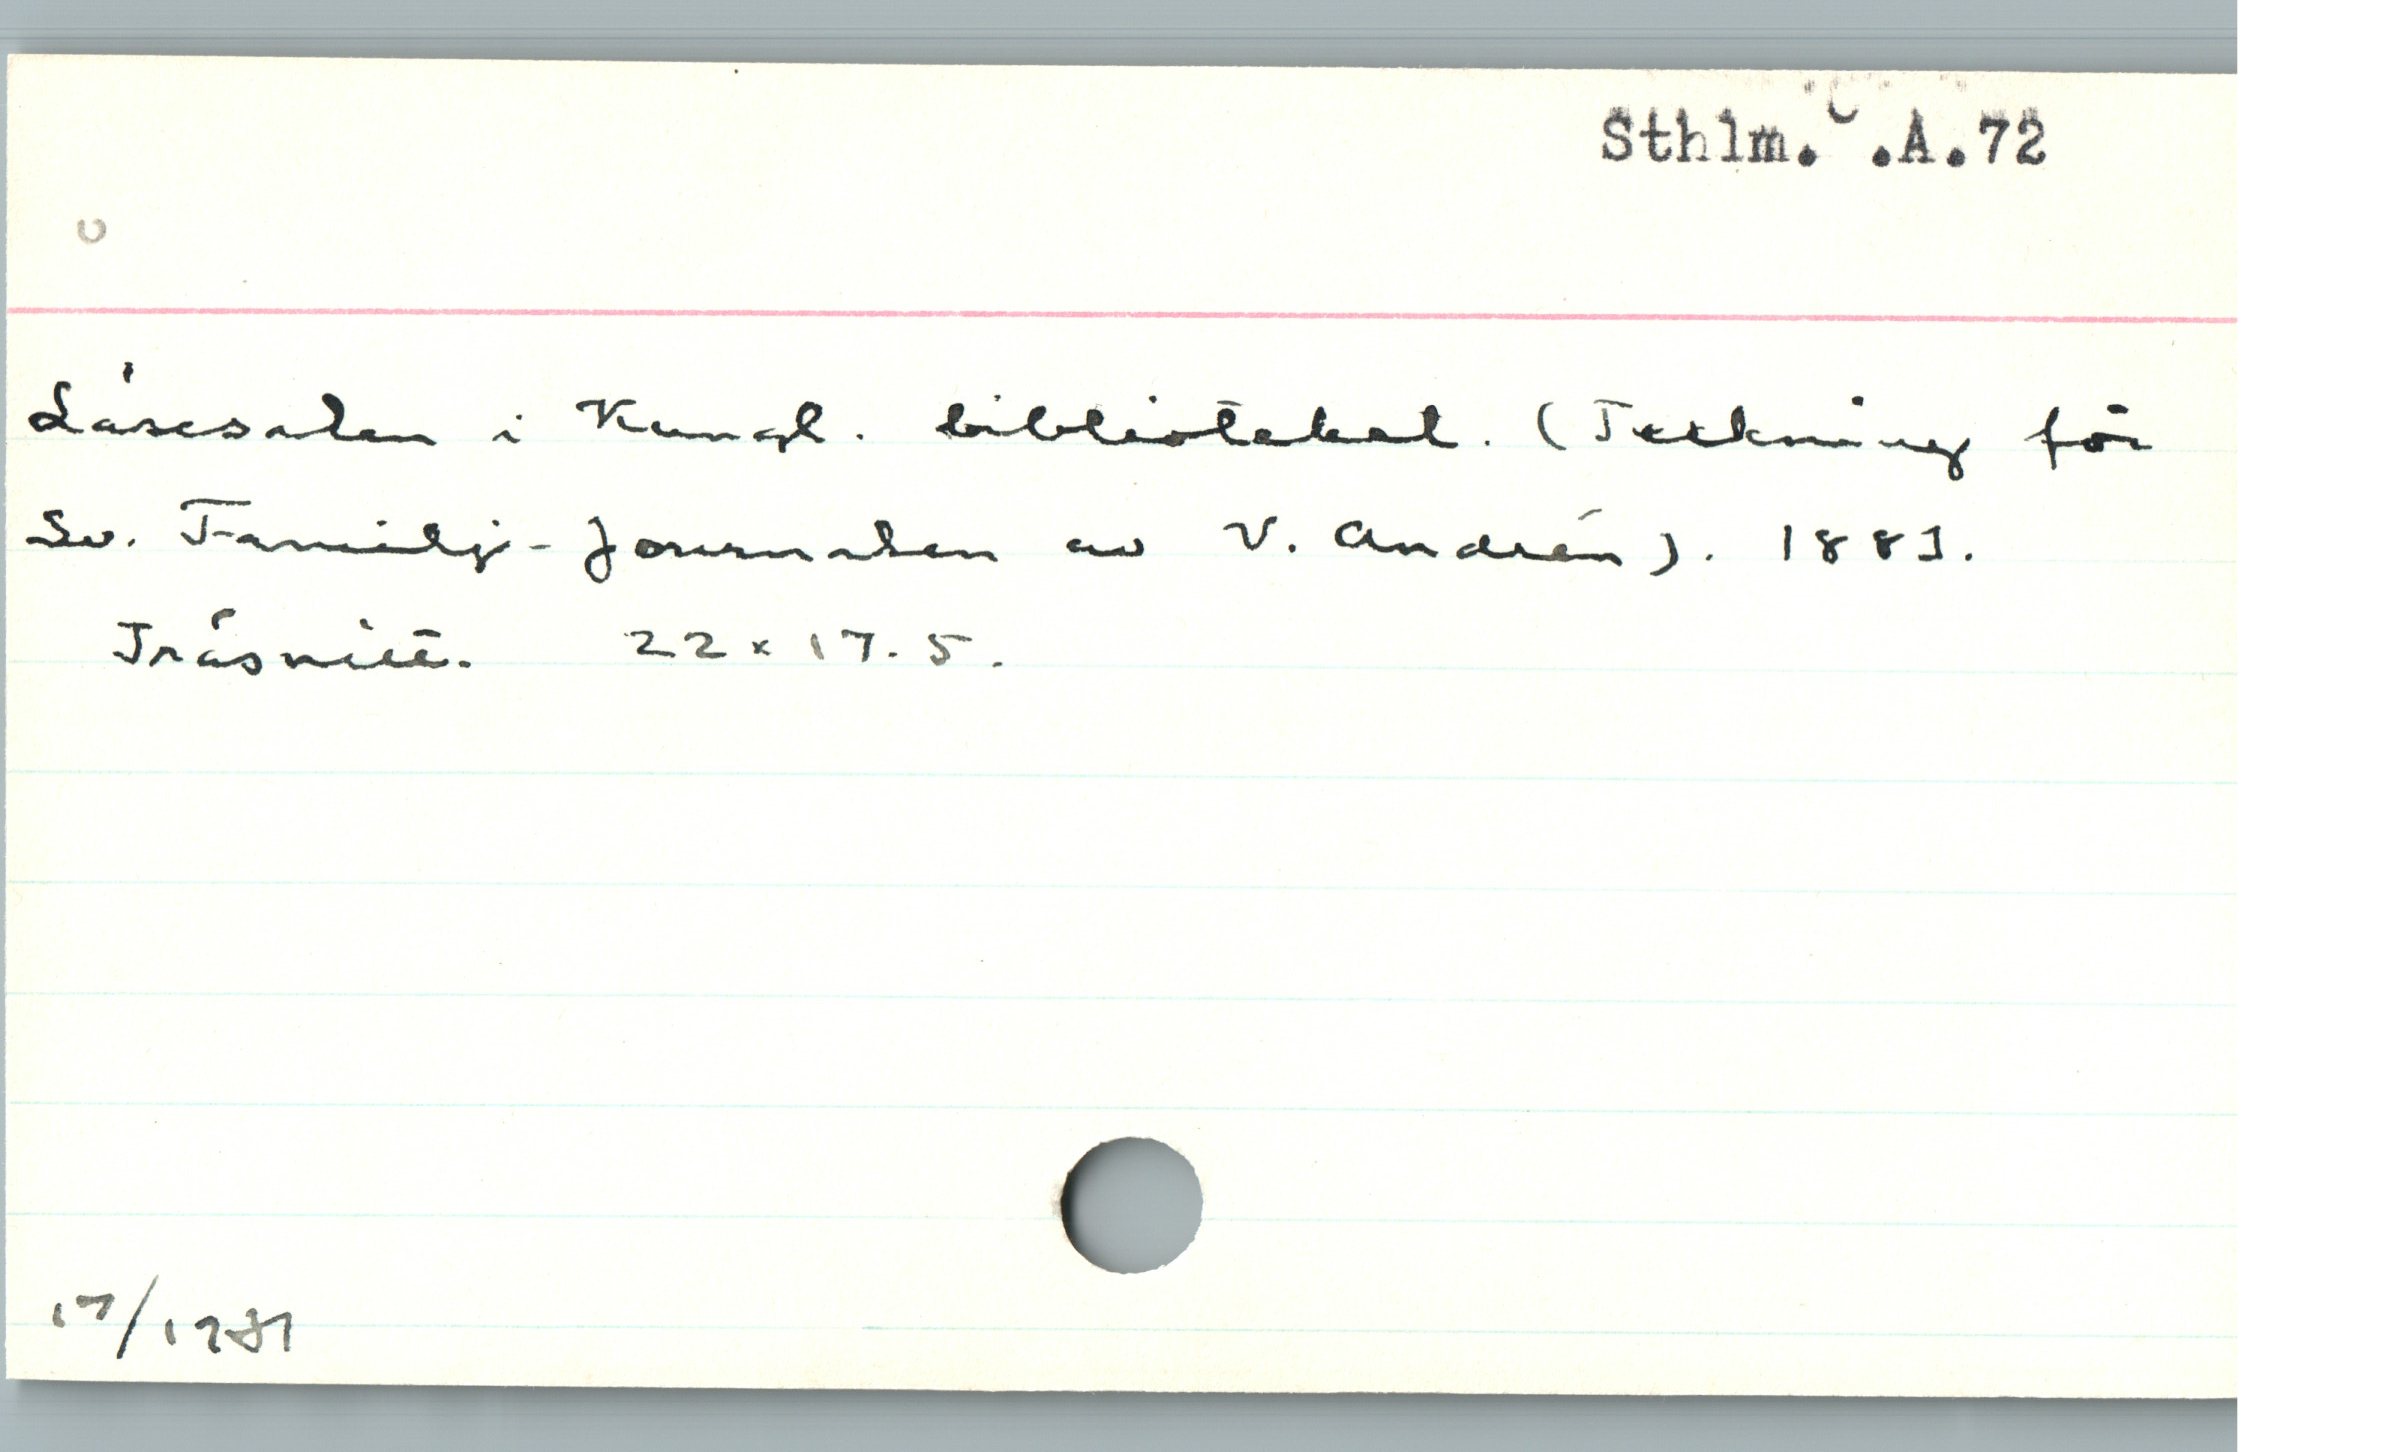 Sthlm. .A.72
Läsesalen i Kungl. biblioteket. (Teckning för
Sv. Familj-Journalen av V. Andrén). 1881.
Träsnitt. 22 x 17.5.
17/1981